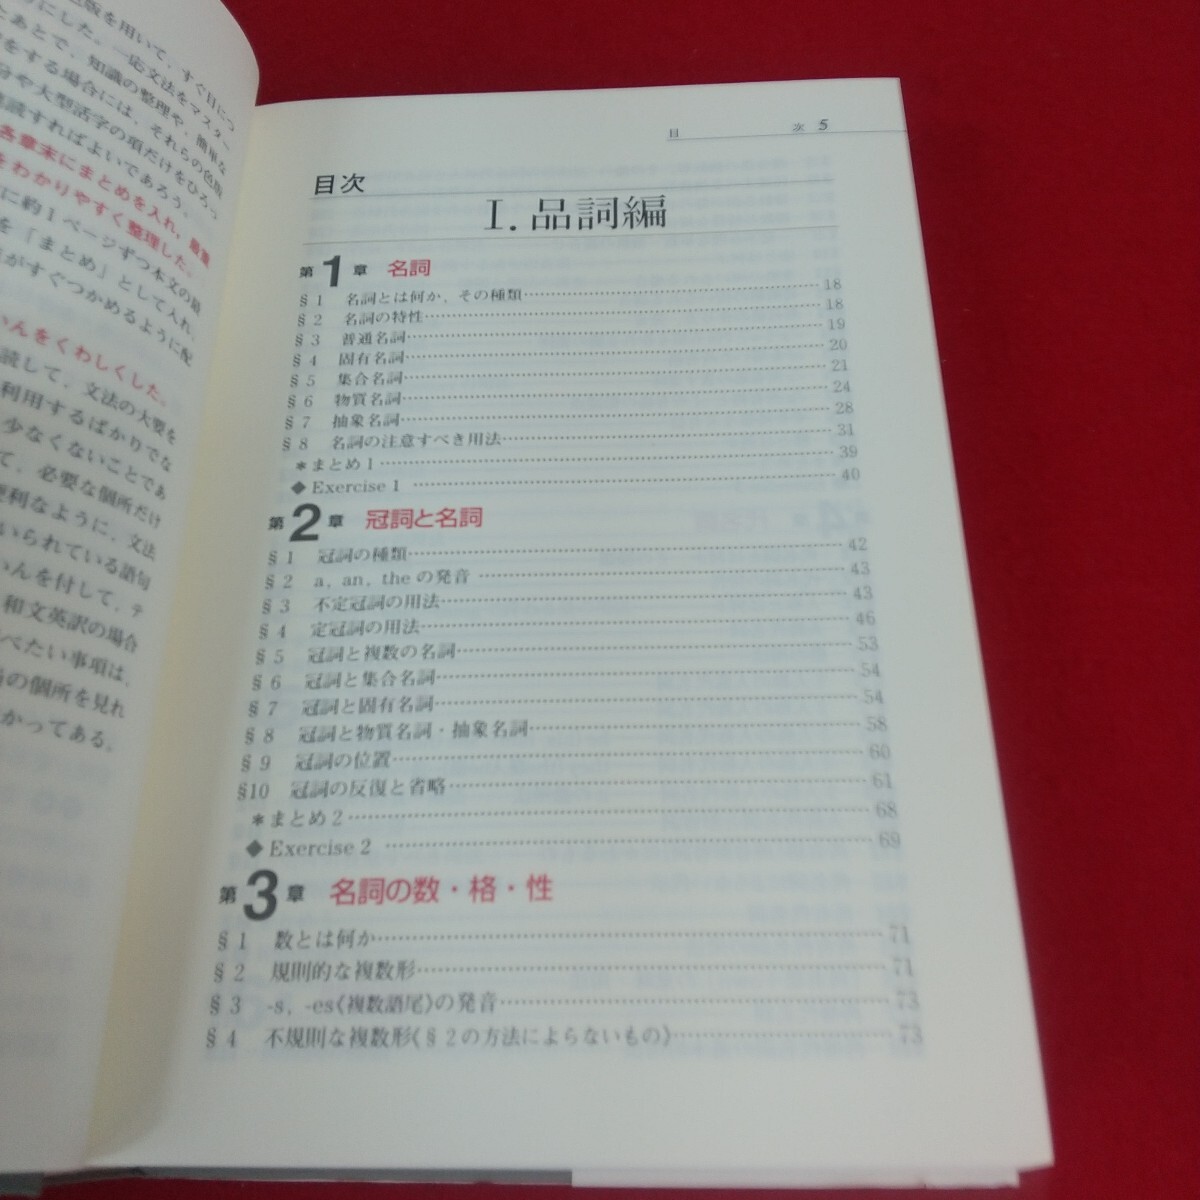 目次 5
目次
I. 品詞編
第1章 名詞
§1 名詞とは何か，その種類 18
§2 名詞の特性 18
§3 普通名詞 19
§4 固有名詞 20
§5 集合名詞 21
§6 物質名詞 24
§7 抽象名詞 28
§8 名詞の注意すべき用法 31
＊まとめ1 39
◆Exercise 1 40
第2章 冠詞と名詞
§1 冠詞の種類 42
§2 a, an, the の発音 43
§3 不定冠詞の用法 43
§4 定冠詞の用法 46
§5 冠詞と複数の名詞 53
§6 冠詞と集合名詞 54
§7 冠詞と固有名詞 54
§8 冠詞と物質名詞・抽象名詞 58
§9 冠詞の位置 60
§10 冠詞の反復と省略 61
＊まとめ2 68
◆Exercise 2 69
第3章 名詞の数・格・性
§1 数とは何か 71
§2 規則的な複数形 71
§3 -s, -es《複数語尾》の発音 73
§4 不規則な複数形《§2の方法によらないもの》 73
版を用いて，すぐ目につ
にした。一応文法をマスター
あとで，知識の整理や，簡単な
をする場合には，それらの色版
分や大型活字の項だけをひろっ
読すればよいであろう。
各章末にまとめを入れ，最重
をわかりやすく整理した。
に約1ページずつ本文の最
を「まとめ」として入れ，
がすぐつかめるように配
いんをくわしくした。
読して，文法の大要を
利用するばかりでな
少なくないことであ
て，必要な個所だけ
便利なように，文法
いられている語句
いんを付して，テ
和文英訳の場合
べたい事項は，
の個所を見れ
かってある。